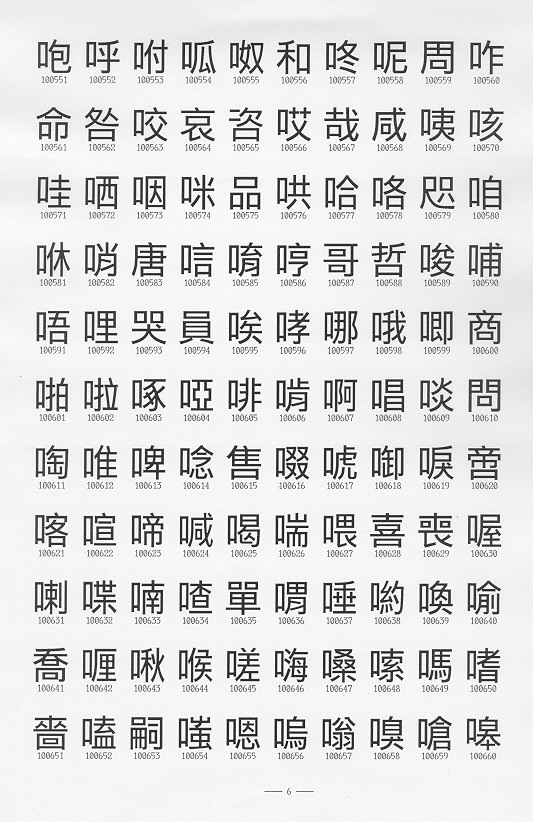 咆 呼 咐 呱 呶 和 咚 呢 周 咋
100551 100552 100553 100554 100555 100556 100557 100558 100559 100560
命 咎 咬 哀 咨 哎 哉 咸 咦 咳
100561 100562 100563 100564 100565 100566 100567 100568 100569 100570
哇 哂 咽 咪 品 哄 哈 咯 咫 咱
100571 100572 100573 100574 100575 100576 100577 100578 100579 100580
咻 哨 唐 唁 唷 哼 哥 哲 唆 哺
100581 100582 100583 100584 100585 100586 100587 100588 100589 100590
唔 哩 哭 員 唉 哮 哪 哦 唧 商
100591 100592 100593 100594 100595 100596 100597 100598 100599 100600
啪 啦 啄 啞 啡 啃 啊 唱 啖 問
100601 100602 100603 100604 100605 100606 100607 100608 100609 100610
啕 唯 啤 唸 售 啜 唬 啣 唳 啻
100611 100612 100613 100614 100615 100616 100617 100618 100619 100620
喀 喧 啼 喊 喝 喘 喂 喜 喪 喔
100621 100622 100623 100624 100625 100626 100627 100628 100629 100630
喇 喋 喃 喳 單 喟 唾 喲 喚 喻
100631 100632 100633 100634 100635 100636 100637 100638 100639 100640
喬 喱 啾 喉 嗟 嗨 嗓 嗦 嗎 嗜
100641 100642 100643 100644 100645 100646 100647 100648 100649 100650
嗇 嗑 嗣 嗤 嗯 嗚 嗡 嗅 嗆 嗥
100651 100652 100653 100654 100655 100656 100657 100658 100659 100660
— 6 —